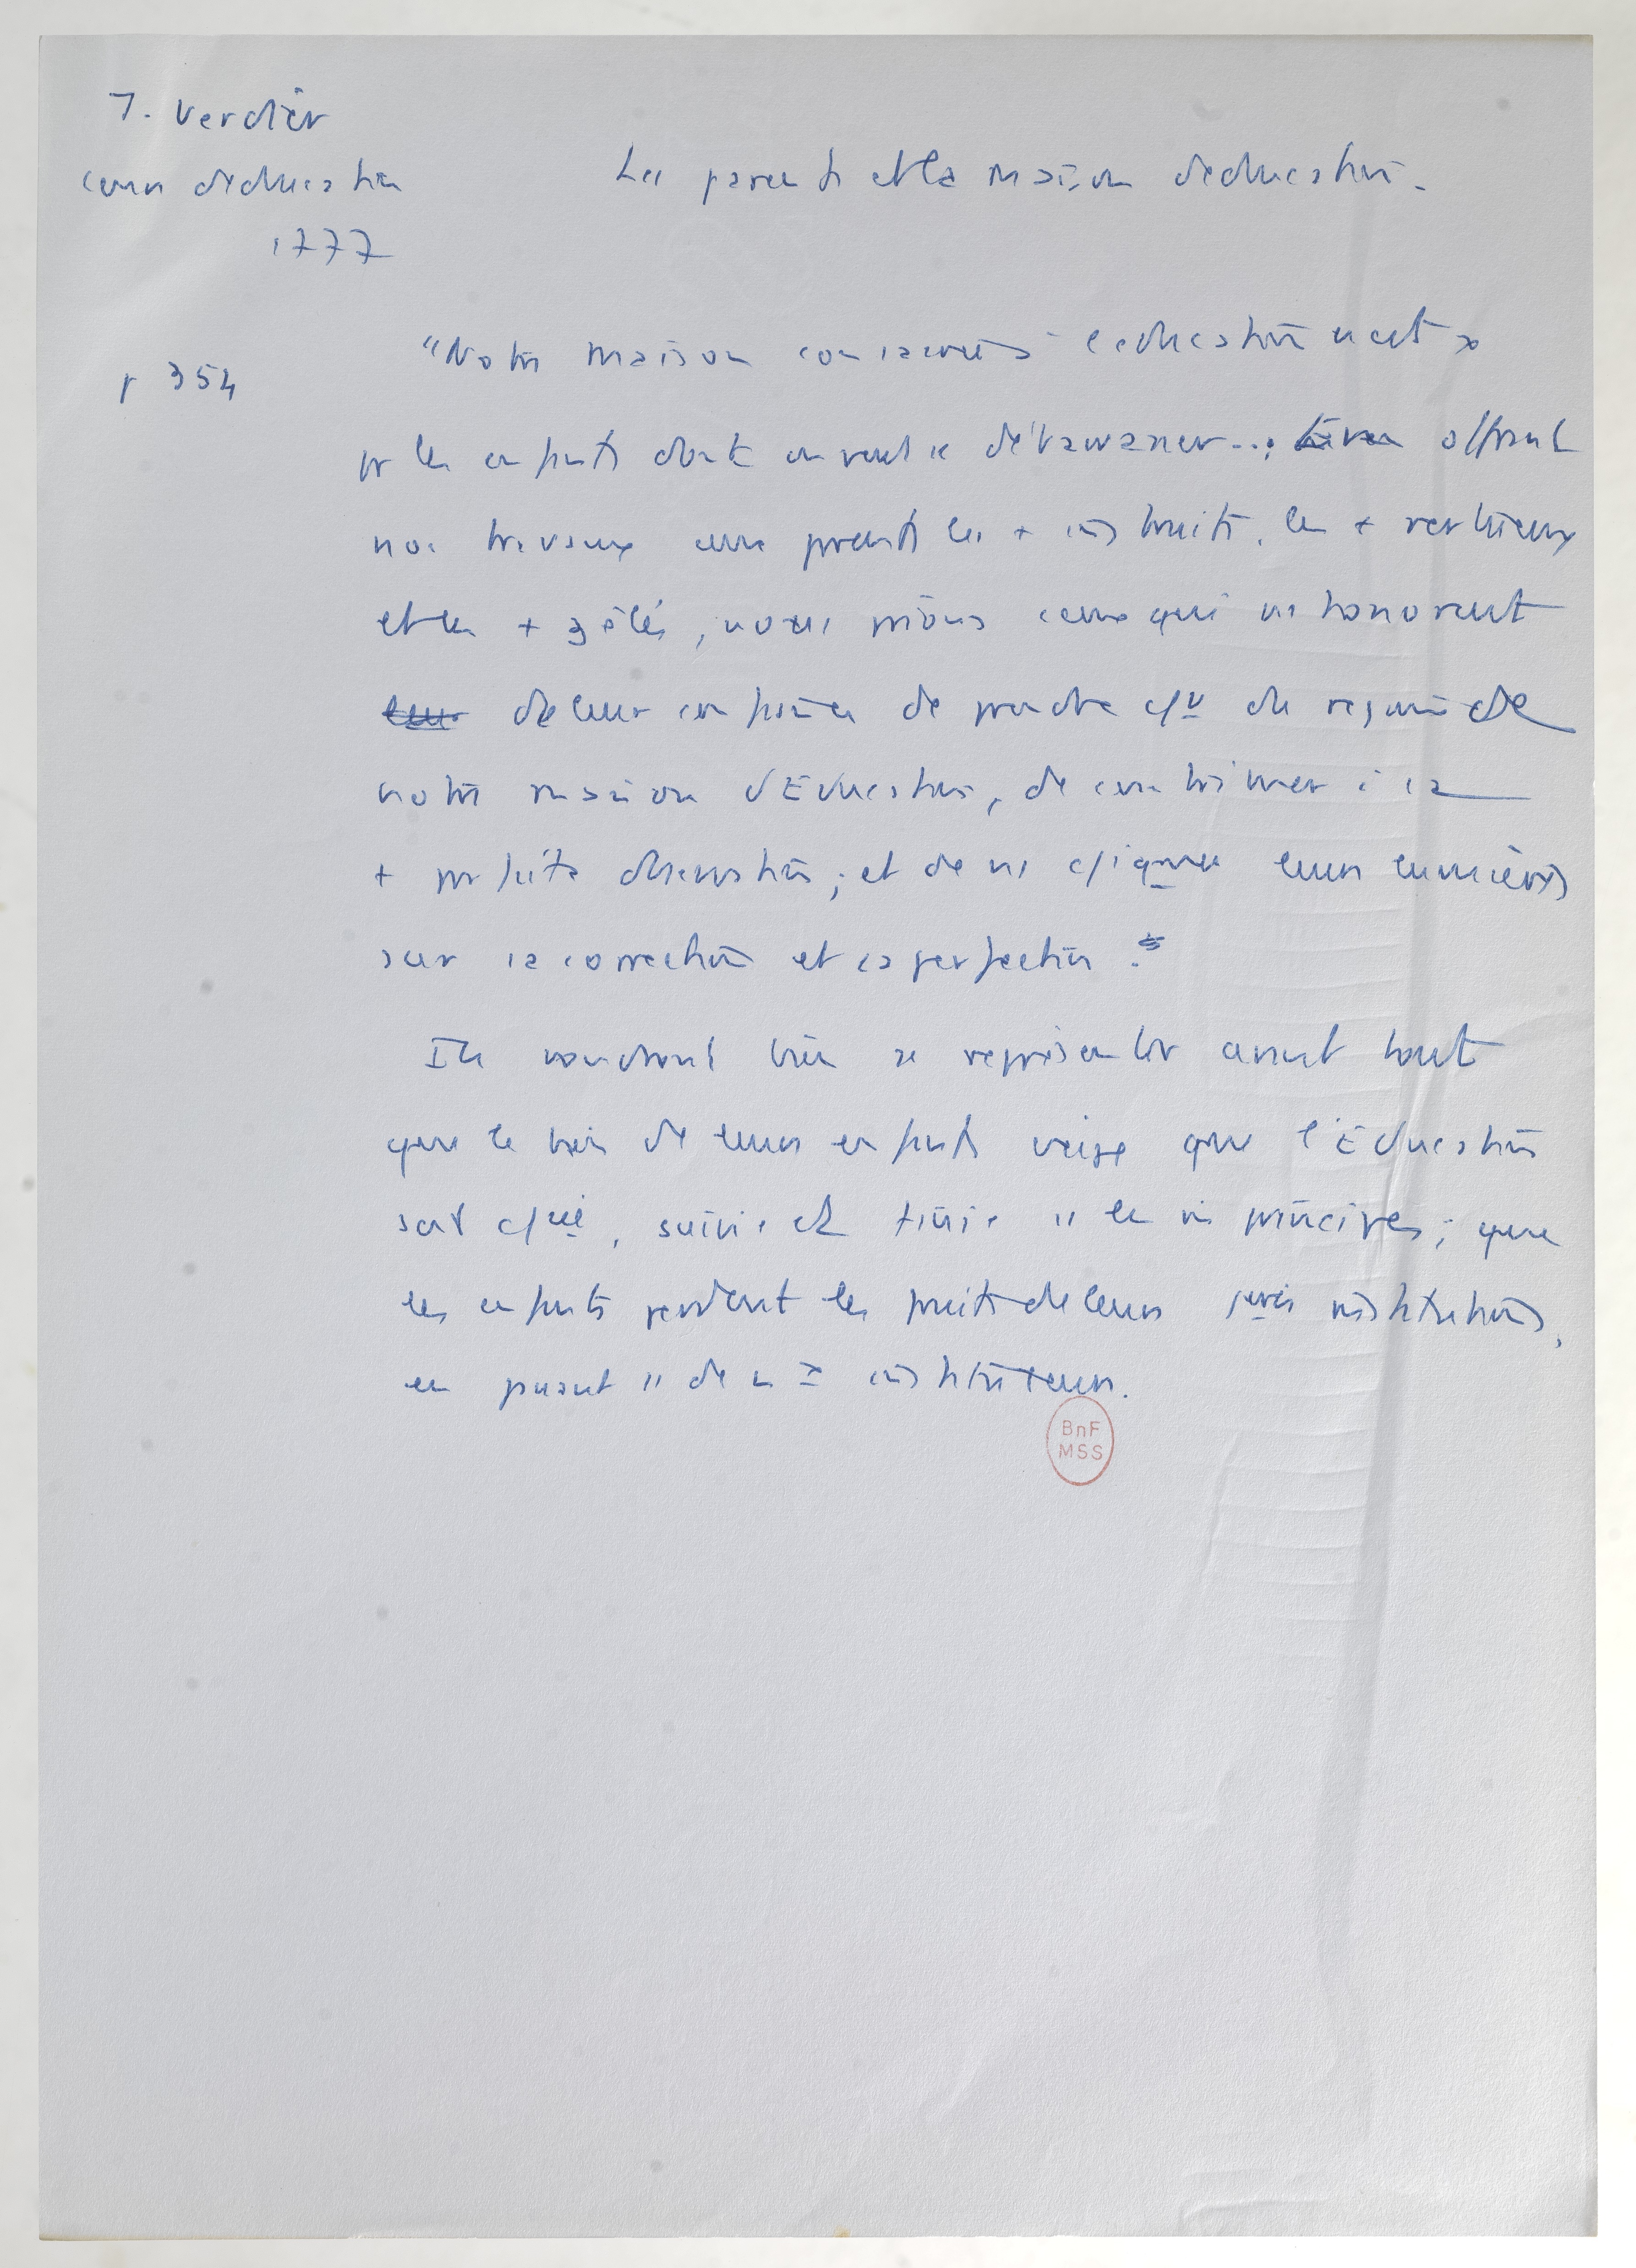 J. Verdier
cours d'éducation
1777
Les parents et la maison d'éducation.
p 354
"Notre maison consacrée à l'éducation n'est
pr les enfants dont on veut se débarrasser...; offrant
nos travaux aux parents les + instruits, les + vertueux
et les + zélés, nous prions ceux qui ns honorent
de leur confiance de prendre du régime de
notre maison d'Éducation, de contribuer à la
+ parfaite observation; et de ns leurs lumières
sur la correction et la perfection."
Ils voudront bien se représenter avant tout
que le bien de leurs enfants exige que l'Éducation
soit, suivie et finie les principes; que
les enfants perdent les fruits de leurs institutions,
en passant de instituteurs.
BnF
MSS